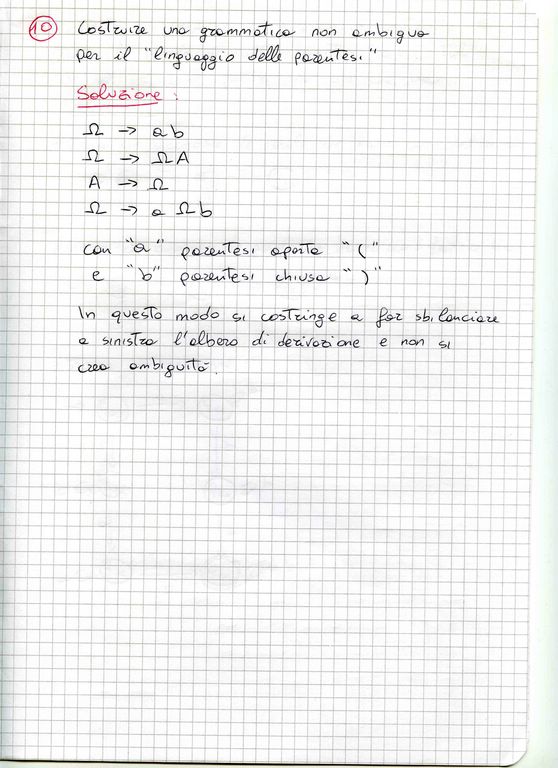 10 Costruire una grammatica non ambigua
per il "linguaggio delle parentesi"
Soluzione :
Ω → ab
Ω → ΩA
A → Ω
Ω → a Ω b
con "a" parentesi aperta "("
e "b" parentesi chiusa ")"
In questo modo si costringe a far sbilanciare
a sinistra l'albero di derivazione e non si
crea ambiguità.